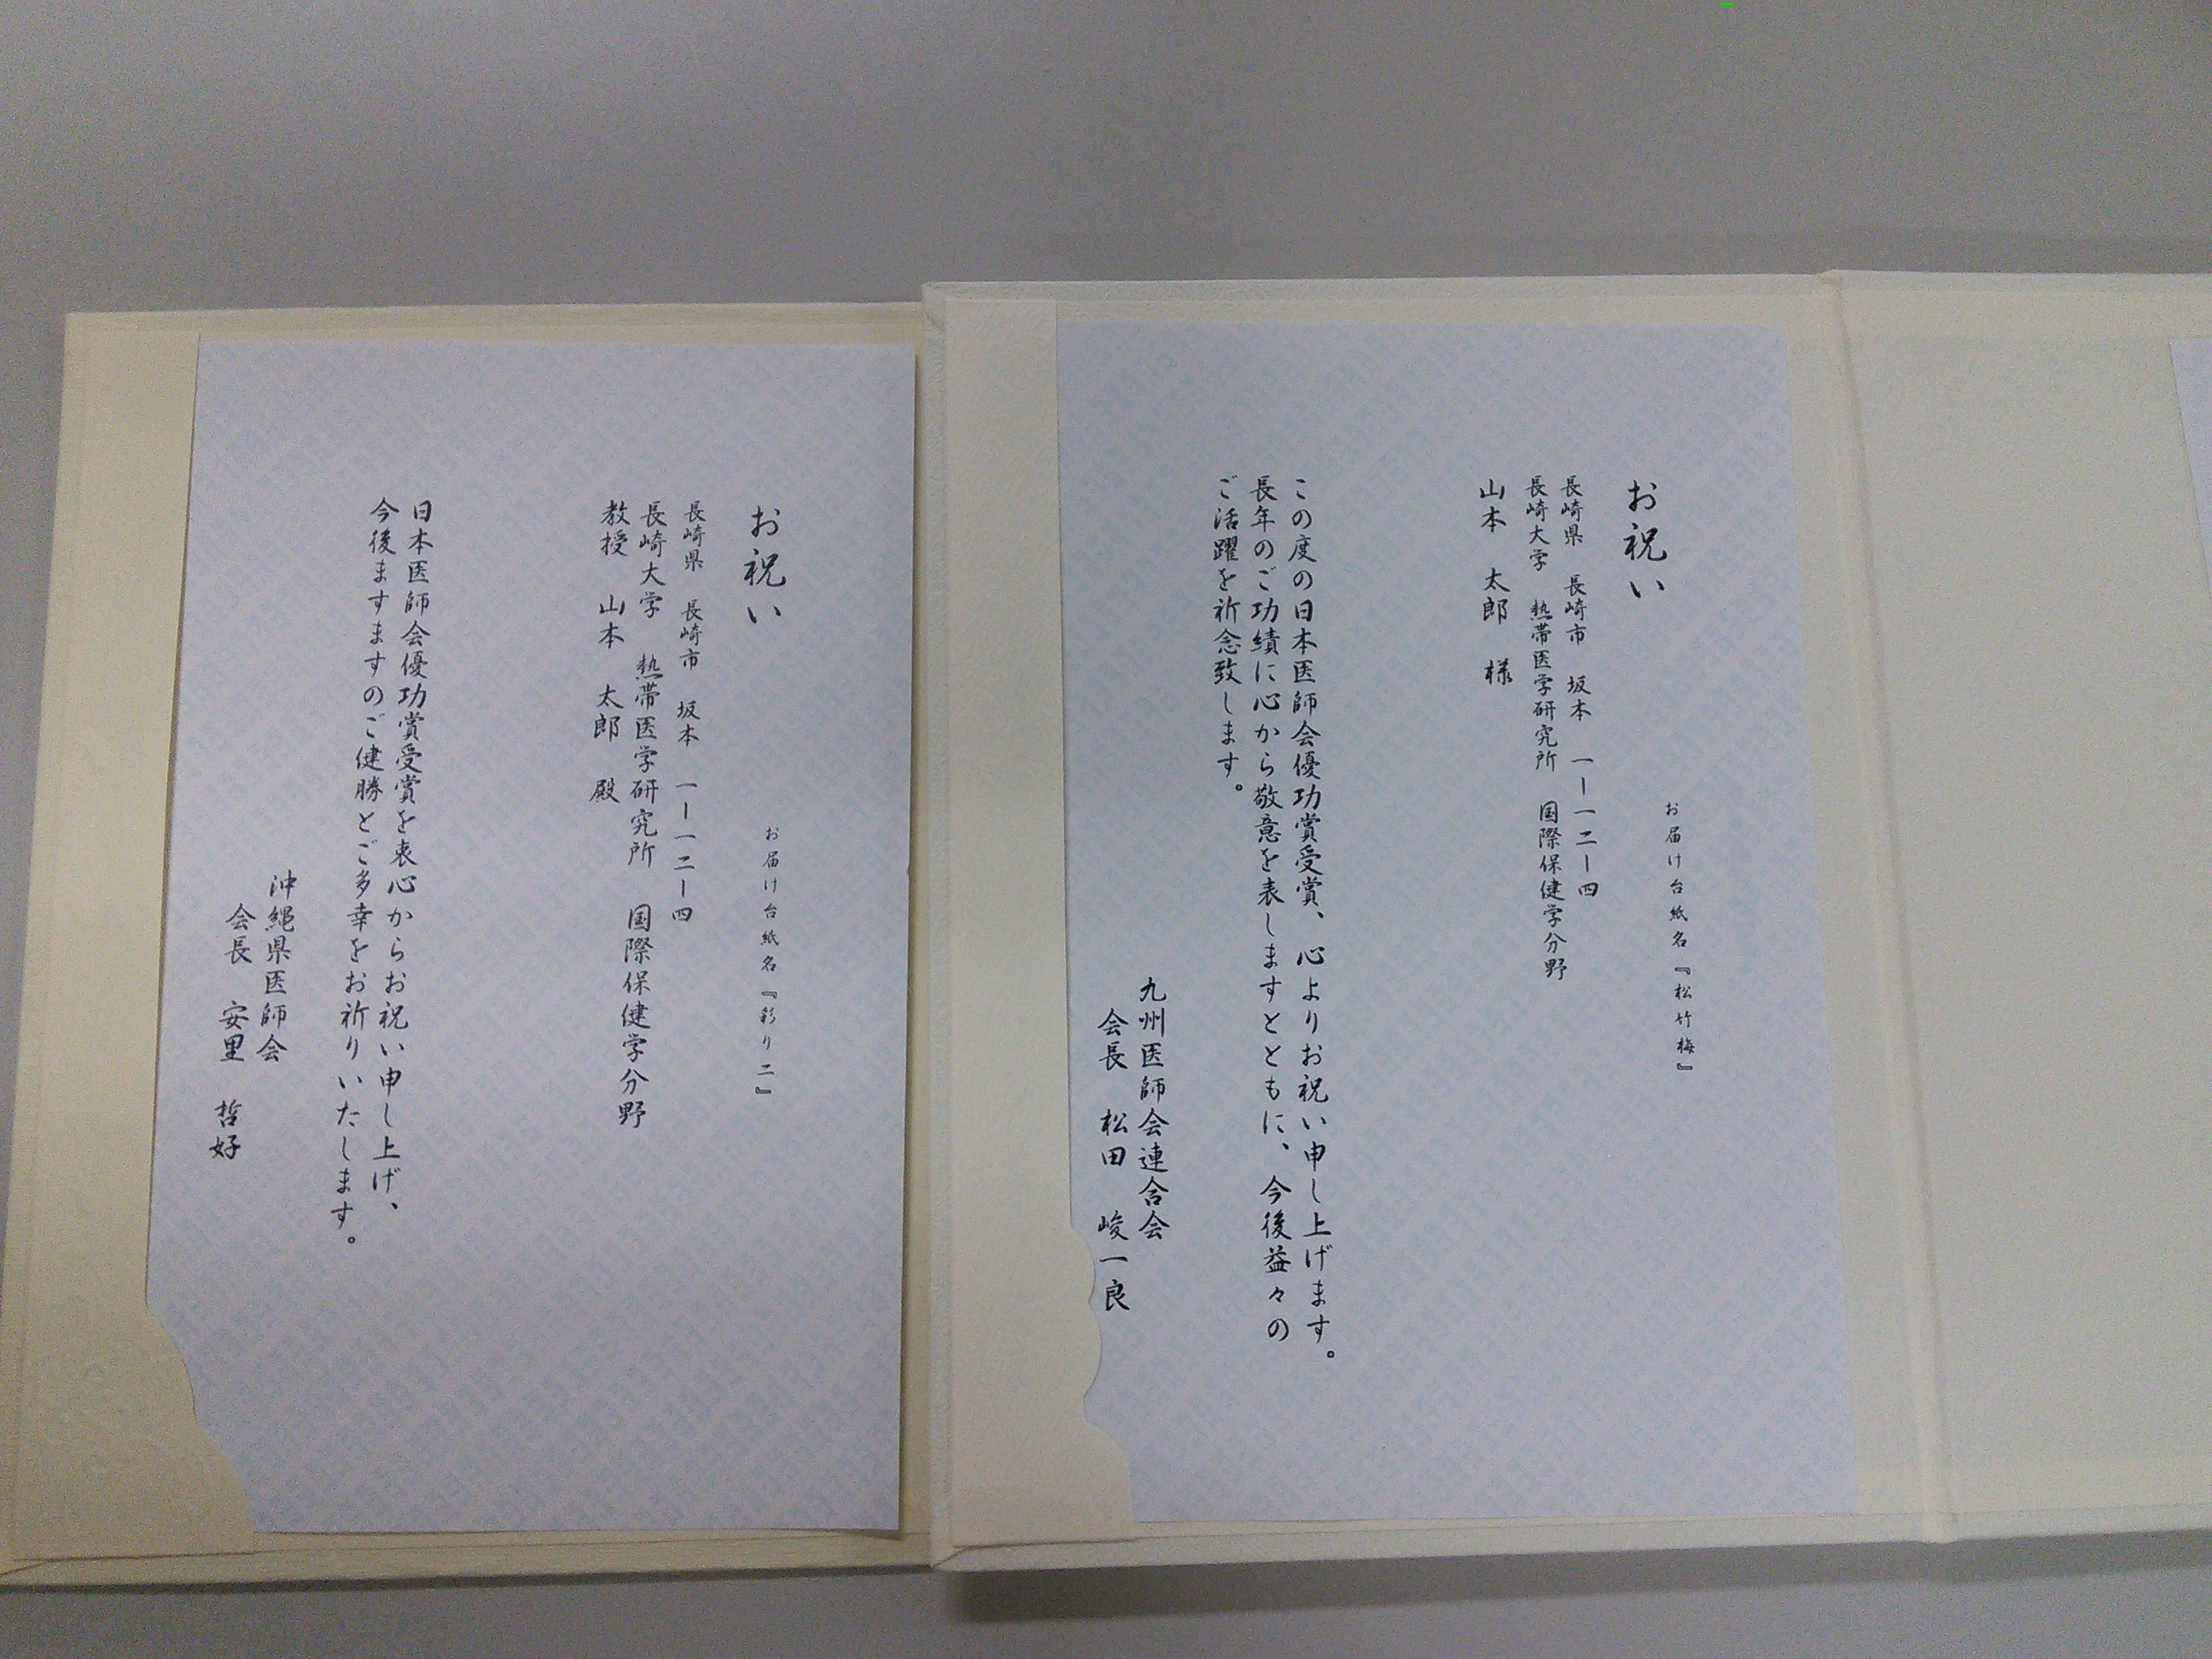 お祝い
お届け台紙名『松竹梅』
長崎県 長崎市 坂本 一ー一二ー四
長崎大学 熱帯医学研究所 国際保健学分野
山本 太郎 様
この度の日本医師会優功賞受賞、心よりお祝い申し上げます。
長年のご功績に心から敬意を表しますとともに、今後益々の
ご活躍を祈念致します。
九州医師会連合会
会長 松田 峻一良
お祝い
お届け台紙名『彩り二』
長崎県 長崎市 坂本 一ー一二ー四
長崎大学 熱帯医学研究所 国際保健学分野
教授 山本 太郎 殿
日本医師会優功賞受賞を衷心からお祝い申し上げ、
今後ますますのご健勝とご多幸をお祈りいたします。
沖縄県医師会
会長 安里 哲好